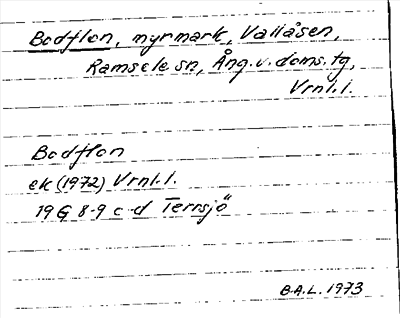 Bodflon, myrmark, Vallåsen,
Ramsele sn, Ång.v. doms. tg,
Vrnl.l.
Bodflon
ek (1972) Vrnl.l.
19 G 8-9 c-d Terrsjö
B.A.L. 1973